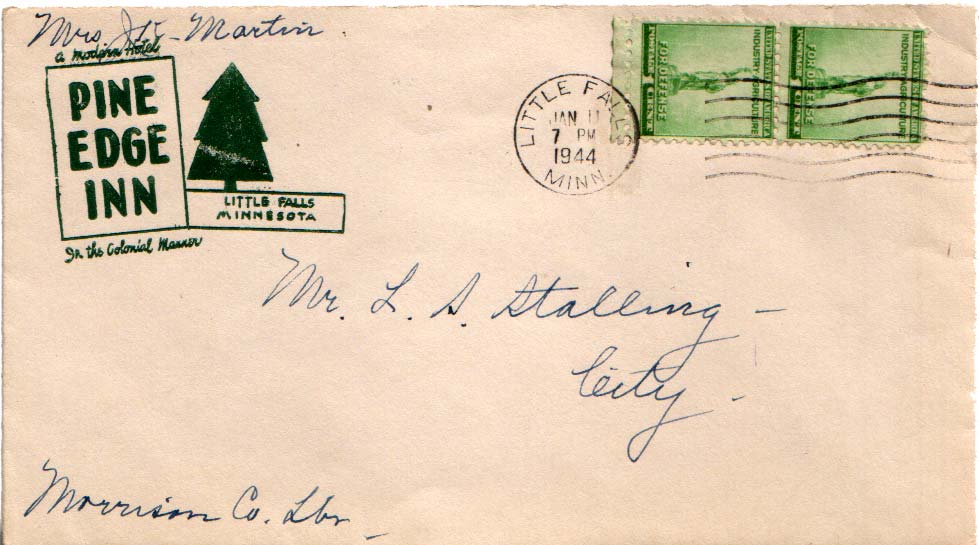 Mrs. J. K. Martin
a modern Hotel
PINE
EDGE
INN
LITTLE FALLS
MINNESOTA
In the Colonial Manner
LITTLE FALLS
JAN 11
7 PM
1944
MINN.
UNITED STATES OF AMERICA
INDUSTRY AGRICULTURE
FOR DEFENSE
POSTAGE 1 CENT
UNITED STATES OF AMERICA
INDUSTRY AGRICULTURE
FOR DEFENSE
POSTAGE 1 CENT
Mr. L. S. Stalling -
City.
Morrison Co. Lbr